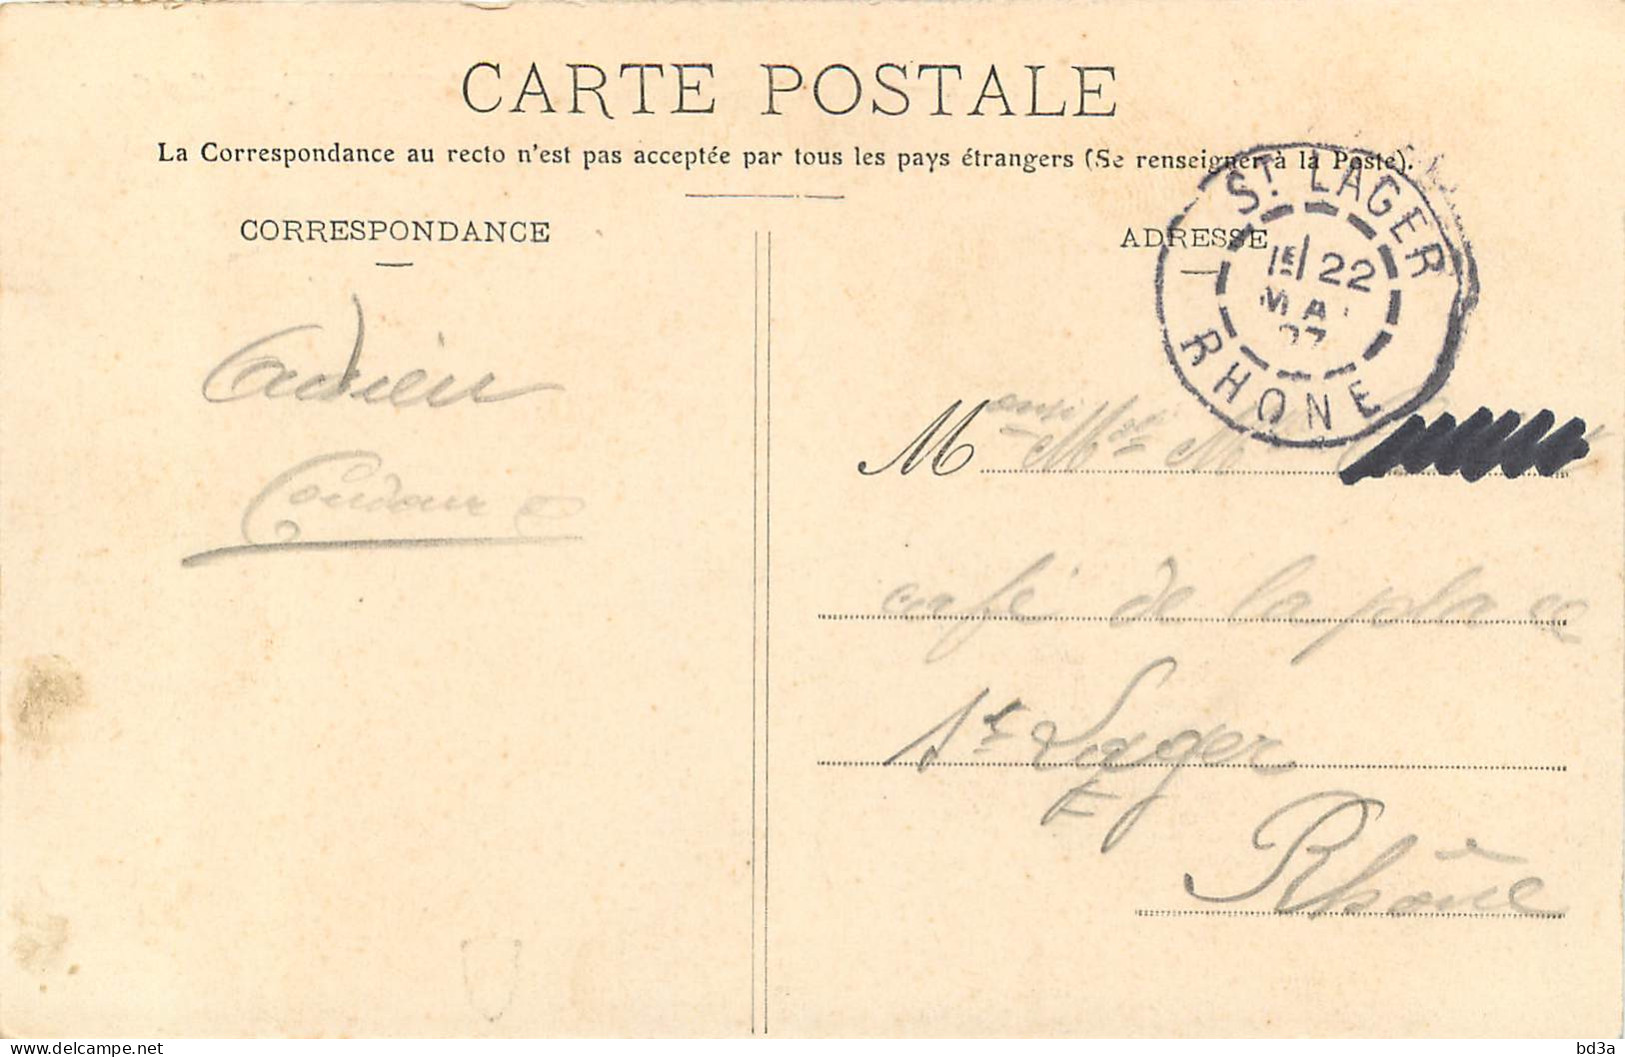 CARTE POSTALE
La Correspondance au recto n'est pas acceptée par tous les pays étrangers (Se renseigner à la Poste).
CORRESPONDANCE
ADRESSE
ST. LAGER
1E 22
MA
07
RHONE
M
café de la place
St Lager
Rhône
bd3a